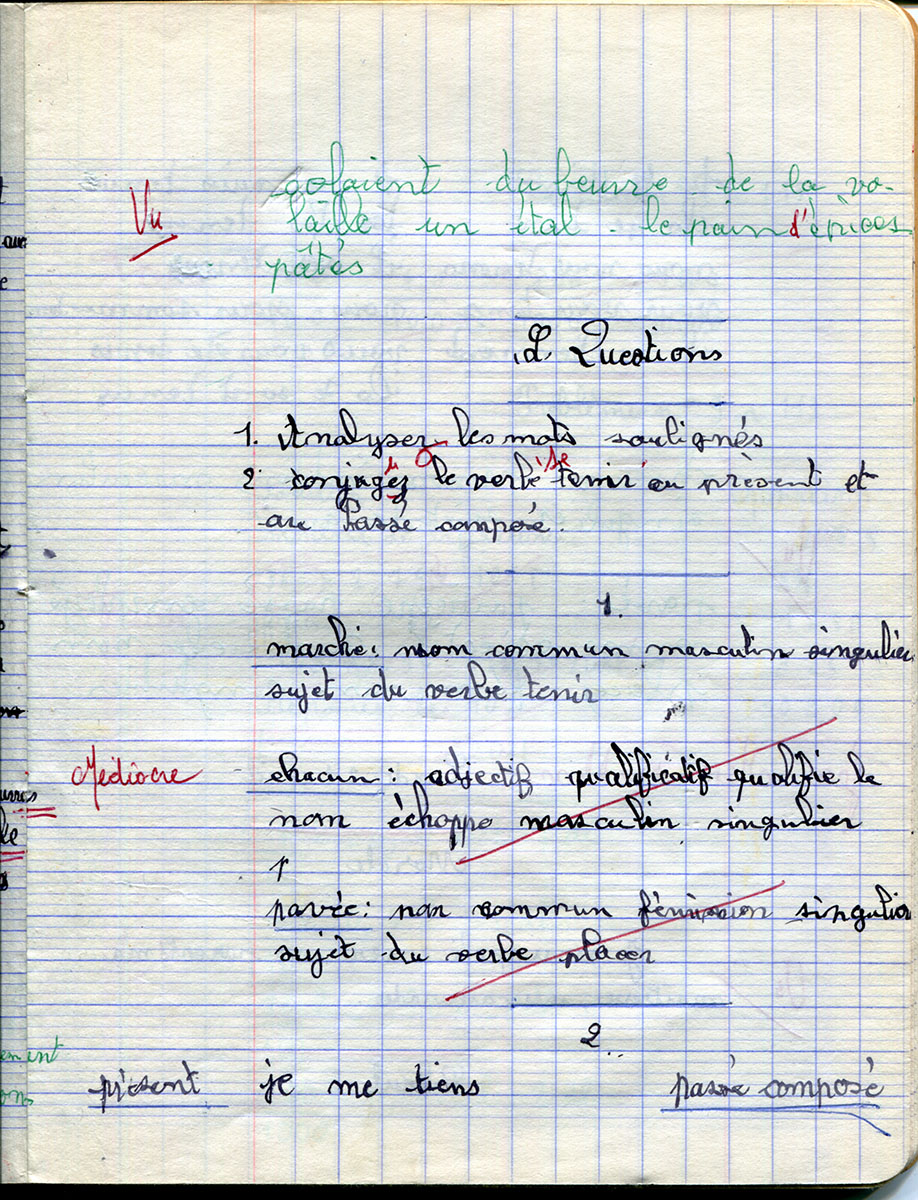 Vu
colaient du beurre de la vo-
laille un étal - le pain d'épices
pâtés
Questions
1. Analyser les mots soulignés
2 conjugez le verbe se tenir au présent et
au Passé composé.
1.
marché: nom commun masculin singulier
sujet du verbe tenir
Médiocre
chacun: adjectif qualificatif qualifie le
nom échoppe masculin singulier
pavée: non commun féminion singulier
sujet du verbe placer
2
présent je me tiens passé composé